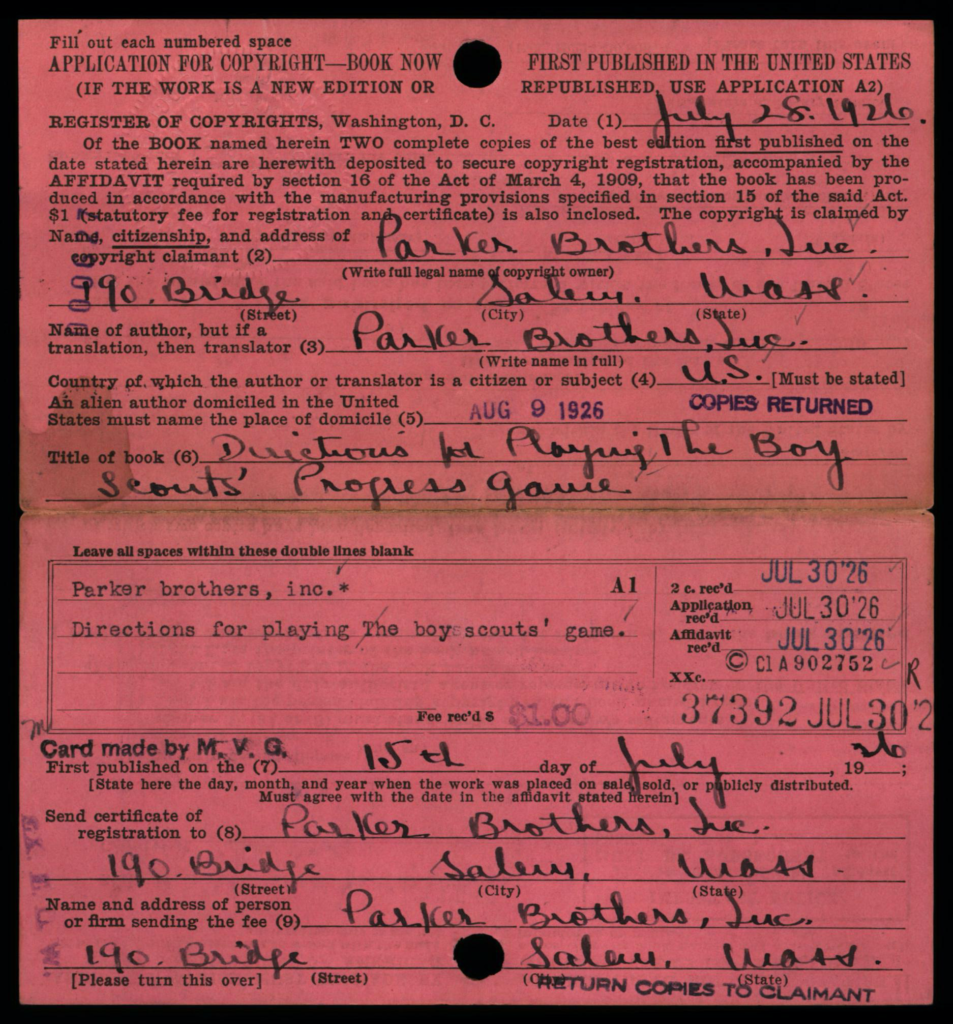 Fill out each numbered space
APPLICATION FOR COPYRIGHT—BOOK NOW FIRST PUBLISHED IN THE UNITED STATES
(IF THE WORK IS A NEW EDITION OR REPUBLISHED, USE APPLICATION A2)
REGISTER OF COPYRIGHTS, Washington, D. C. Date (1) July 28. 1926.
Of the BOOK named herein TWO complete copies of the best edition first published on the
date stated herein are herewith deposited to secure copyright registration, accompanied by the
AFFIDAVIT required by section 16 of the Act of March 4, 1909, that the book has been pro-
duced in accordance with the manufacturing provisions specified in section 15 of the said Act.
$1 (statutory fee for registration and certificate) is also inclosed. The copyright is claimed by
Name, citizenship, and address of
copyright claimant (2) Parker Brothers, Inc.
(Write full legal name of copyright owner)
190. Bridge Salem, Mass.
(Street) (City) (State)
Name of author, but if a
translation, then translator (3) Parker Brothers, Inc.
(Write name in full)
Country of which the author or translator is a citizen or subject (4) U.S. [Must be stated]
An alien author domiciled in the United
States must name the place of domicile (5) AUG 9 1926 COPIES RETURNED
Title of book (6) Directions for Playing The Boy
Scouts' Progress Game
Leave all spaces within these double lines blank
Parker brothers, inc.* A1
Directions for playing The boy scouts' game.
2 c. rec'd JUL 30 '26
Application rec'd JUL 30 '26
Affidavit rec'd JUL 30 '26
© Cl A 902752
XXc. R
Fee rec'd $ $1.00 37392 JUL 30 '2
m
Card made by M. V. G.
First published on the (7) 15th day of July, 1926;
[State here the day, month, and year when the work was placed on sale, sold, or publicly distributed.
Must agree with the date in the affidavit stated herein]
Send certificate of
registration to (8) Parker Brothers, Inc.
190. Bridge Salem, Mass.
(Street) (City) (State)
Name and address of person
or firm sending the fee (9) Parker Brothers, Inc.
190. Bridge Salem, Mass.
[Please turn this over] (Street) (State)
RETURN COPIES TO CLAIMANT